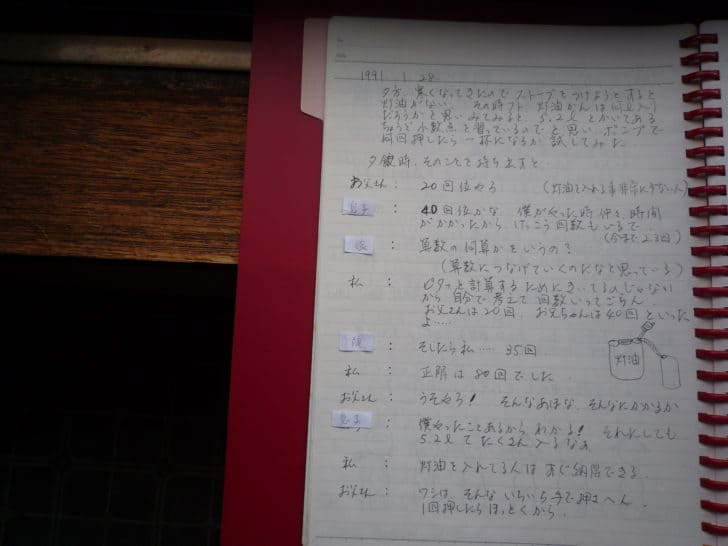 1991 1 28
夕方 寒くなってきたので ストーブをつけようとすると
灯油がない。 その時フト 灯油かんは何ℓ入り
だろうかと思いみてみると 5.2ℓとかいてある
ちょうど小数点を習っているのでと思い ポンプで
何回押したら一杯になるか 試してみた。
夕飯時、そのことを持ち出すと、
お父さん : 20回位やろ (灯油を入れる事非常に少ない人)
息子 : 40回位かな 僕がやった時 時間
がかかったから けっこう回数もいるで
(今まで2.3回)
娘 : 算数の何算かをいうの?
(算数につなげていくのだなと思っている)
私 : ピタッと計算するためにきいてるのじゃない
から 自分で考えて 回数いってごらん。
お父さんは20回、お兄ちゃんは40回といった
よ……
娘 : そしたら私…… 35回
私 : 正解は80回でした。
お父さん : うそやろ! そんなあほな、そんなにかかるか
息子 : 僕やったことあるから わかる! それにしても
5.2ℓて たくさん入るなぁ
私 : 灯油を入れてる人は すぐ納得できる。
お父さん : ワシは そんな いちいち手で押さへん
1回押したら ほっとくから。
灯油